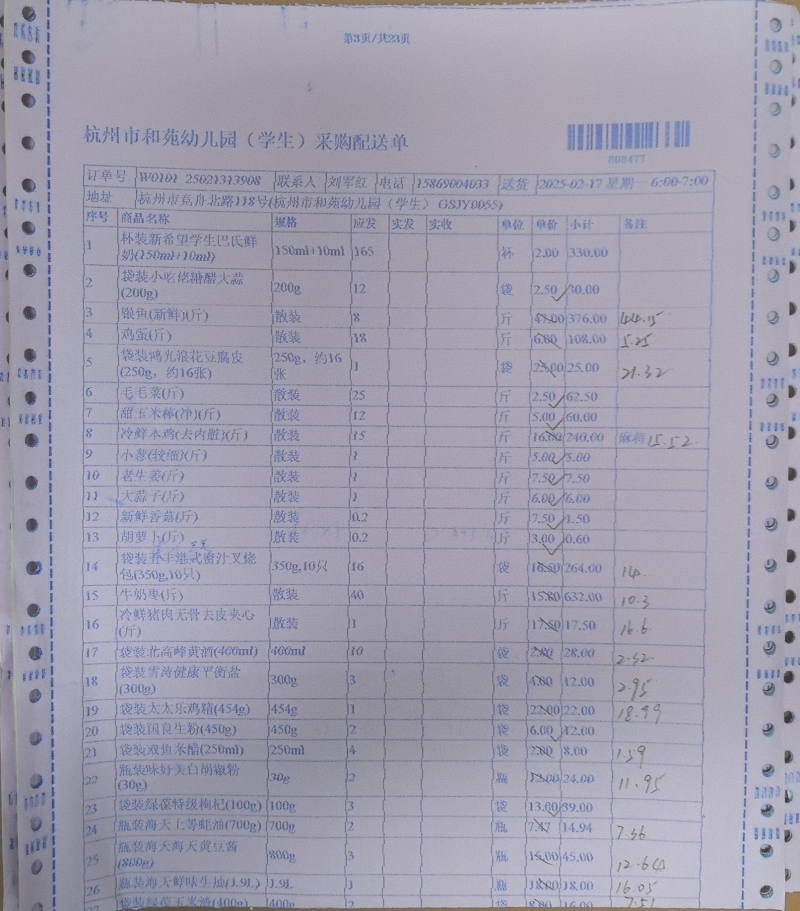 第3页/共23页
杭州市和苑幼儿园（学生）采购配送单
808477
订单号 W0101 25021313908 联系人 刘军红 电话 15869004033 送货 2025-02-17 星期一 6:00-7:00
地址 杭州市莫舟北路118号(杭州市和苑幼儿园（学生） GSJY0055)
序号 商品名称 规格 应发 实发 实收 单位 单价 小计 备注
1 杯装新希望学生巴氏鲜奶(150ml+10ml) 150ml+10ml 165 杯 2.00 330.00
2 袋装小吃佬糖醋大蒜(200g) 200g 12 袋 2.50 30.00
3 银鱼(新鲜)(斤) 散装 8 斤 47.00 376.00 44.15
4 鸡蛋(斤) 散装 18 斤 6.00 108.00 5.25
5 袋装鸿光浪花豆腐皮(250g，约16张) 250g，约16张 1 袋 25.00 25.00 21.32
6 毛毛菜(斤) 散装 25 斤 2.50 62.50
7 甜玉米棒(净)(斤) 散装 12 斤 5.00 60.00
8 冷鲜本鸡(去内脏)(斤) 散装 15 斤 16.00 240.00 15.52
9 小葱(较细)(斤) 散装 1 斤 5.00 5.00
10 老生姜(斤) 散装 1 斤 7.50 7.50
11 大蒜子(斤) 散装 1 斤 6.00 6.00
12 新鲜香菇(斤) 散装 0.2 斤 7.50 1.50
13 胡萝卜(斤) 散装 0.2 斤 3.00 0.60
14 袋装 港式蜜汁叉烧包(350g,10只) 350g,10只 16 袋 16.50 264.00 14.
15 牛奶枣(斤) 散装 40 斤 15.80 632.00 10.3
16 冷鲜猪肉无骨去皮夹心(斤) 散装 1 斤 17.50 17.50 16.6
17 袋装北高峰黄酒(400ml) 400ml 10 袋 2.80 28.00 2.32
18 袋装雪涛健康平衡盐(300g) 300g 3 袋 4.00 12.00 2.95
19 袋装太太乐鸡精(454g) 454g 1 袋 22.00 22.00 18.99
20 袋装国良生粉(450g) 450g 2 袋 6.00 12.00
21 袋装双鱼米醋(250ml) 250ml 4 袋 2.00 8.00 1.59
22 瓶装味好美白胡椒粉(30g) 30g 2 瓶 12.00 24.00 11.95
23 袋装绿葆特级枸杞(100g) 100g 3 袋 13.00 39.00
24 瓶装海天上等蚝油(700g) 700g 2 瓶 7.47 14.94 7.36
25 瓶装海天海天黄豆酱(800g) 800g 3 瓶 15.00 45.00 12.64
26 瓶装海天鲜味生抽(1.9L) 1.9L 1 瓶 18.00 18.00 16.05
27 袋装绿葆玉米渣(400g) 400g 2 袋 8.00 16.00 7.51